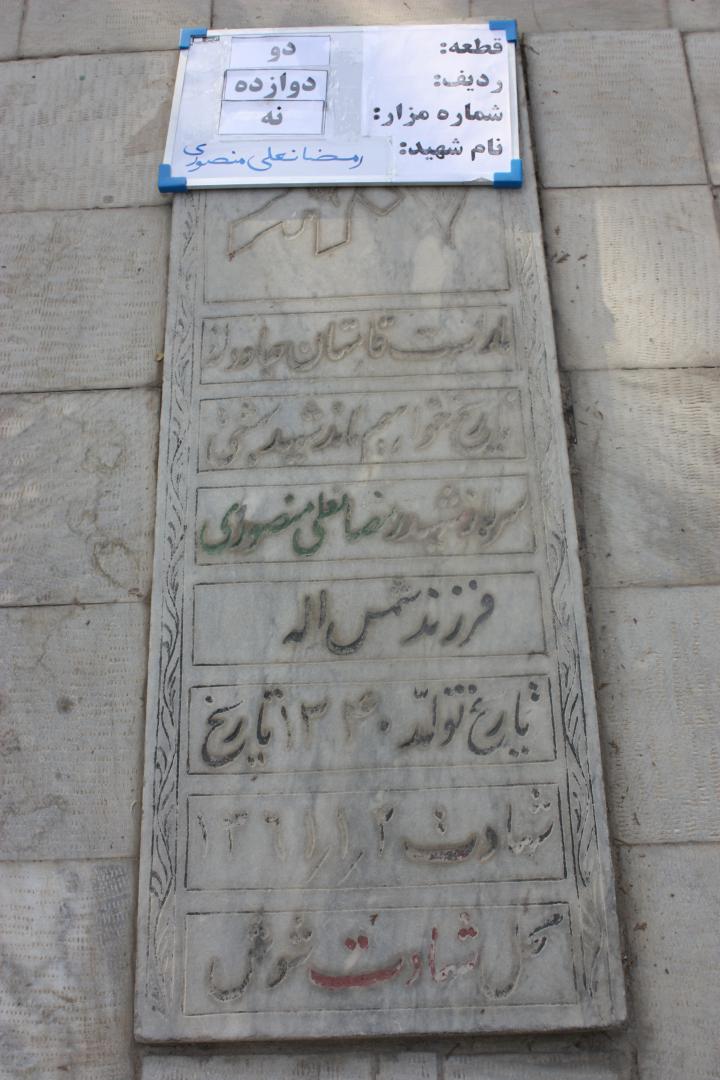 قطعه: دو
ردیف: دوازده
شماره مزار: نه
نام شهید: رمضانعلی منصوری
تاریخ خواهم ماند شهید
سرباز شهید رمضانعلی منصوری
فرزند شمس اله
تاریخ تولد ۱۳۴۰ تاریخ
شهادت ۲/۱/۱۳۶۱
محل شهادت شوش